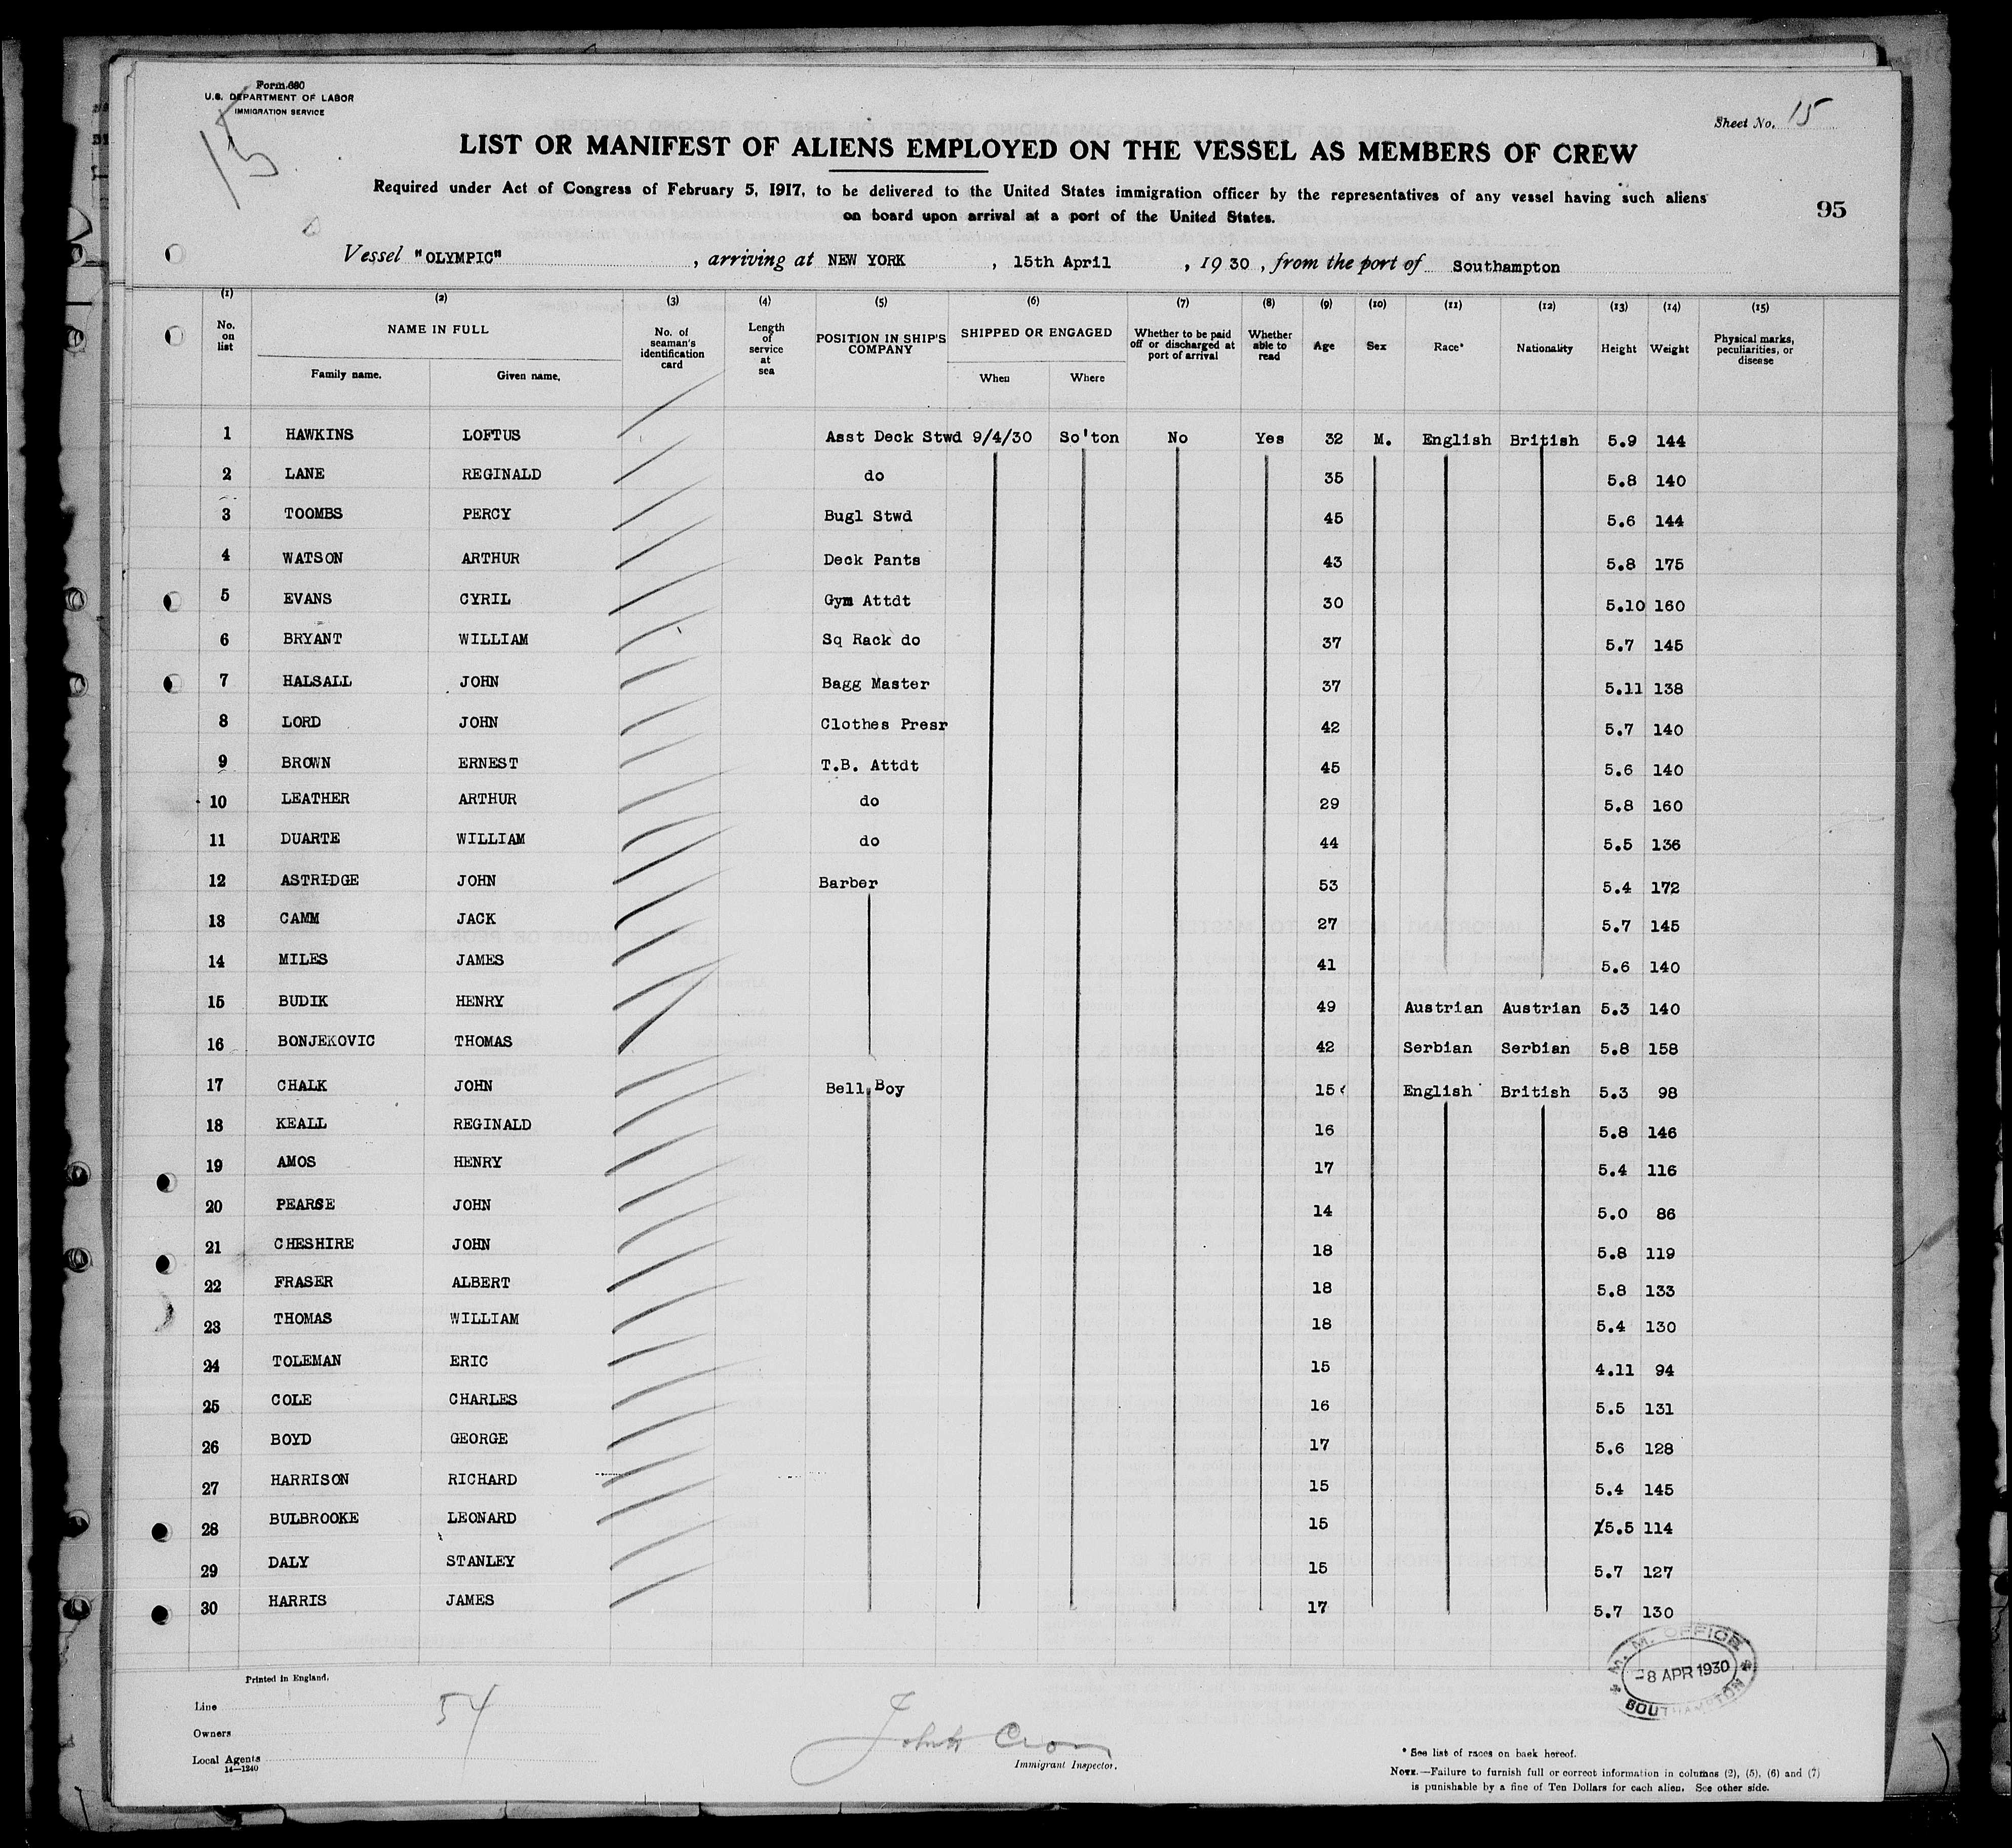 Form 680
U.S. DEPARTMENT OF LABOR
IMMIGRATION SERVICE
15
Sheet No. 15
LIST OR MANIFEST OF ALIENS EMPLOYED ON THE VESSEL AS MEMBERS OF CREW
Required under Act of Congress of February 5, 1917, to be delivered to the United States immigration officer by the representatives of any vessel having such aliens
on board upon arrival at a port of the United States.
95
Vessel "OLYMPIC", arriving at NEW YORK, 15th April, 1930, from the port of Southampton
(1) (2) (3) (4) (5) (6) (7) (8) (9) (10) (11) (12) (13) (14) (15)
No. on list NAME IN FULL Family name. Given name. No. of seaman's identification card Length of service at sea POSITION IN SHIP'S COMPANY SHIPPED OR ENGAGED When Where Whether to be paid off or discharged at port of arrival Whether able to read Age Sex Race* Nationality Height Weight Physical marks, peculiarities, or disease
1 HAWKINS LOFTUS Asst Deck Stwd 9/4/30 So'ton No Yes 32 M. English British 5.9 144
2 LANE REGINALD do 35 5.8 140
3 TOOMBS PERCY Bugl Stwd 45 5.6 144
4 WATSON ARTHUR Deck Pants 43 5.8 175
5 EVANS CYRIL Gym Attdt 30 5.10 160
6 BRYANT WILLIAM Sq Rack do 37 5.7 145
7 HALSALL JOHN Bagg Master 37 5.11 138
8 LORD JOHN Clothes Presr 42 5.7 140
9 BROWN ERNEST T.B. Attdt 45 5.6 140
10 LEATHER ARTHUR do 29 5.8 160
11 DUARTE WILLIAM do 44 5.5 136
12 ASTRIDGE JOHN Barber 53 5.4 172
13 CAMM JACK 27 5.7 145
14 MILES JAMES 41 5.6 140
15 BUDIK HENRY 49 Austrian Austrian 5.3 140
16 BONJEKOVIC THOMAS 42 Serbian Serbian 5.8 158
17 CHALK JOHN Bell Boy 15 English British 5.3 98
18 KEALL REGINALD 16 5.8 146
19 AMOS HENRY 17 5.4 116
20 PEARSE JOHN 14 5.0 86
21 CHESHIRE JOHN 18 5.8 119
22 FRASER ALBERT 18 5.8 133
23 THOMAS WILLIAM 18 5.4 130
24 TOLEMAN ERIC 15 4.11 94
25 COLE CHARLES 16 5.5 131
26 BOYD GEORGE 17 5.6 128
27 HARRISON RICHARD 15 5.4 145
28 BULBROOKE LEONARD 15 5.5 114
29 DALY STANLEY 15 5.7 127
30 HARRIS JAMES 17 5.7 130
M. M. OFFICE
-8 APR 1930
SOUTHAMPTON
Printed in England.
Line
Owners
Local Agents
14—1240
54
Immigrant Inspector.
* See list of races on back hereof.
NOTE.—Failure to furnish full or correct information in columns (2), (5), (6) and (7)
is punishable by a fine of Ten Dollars for each alien. See other side.